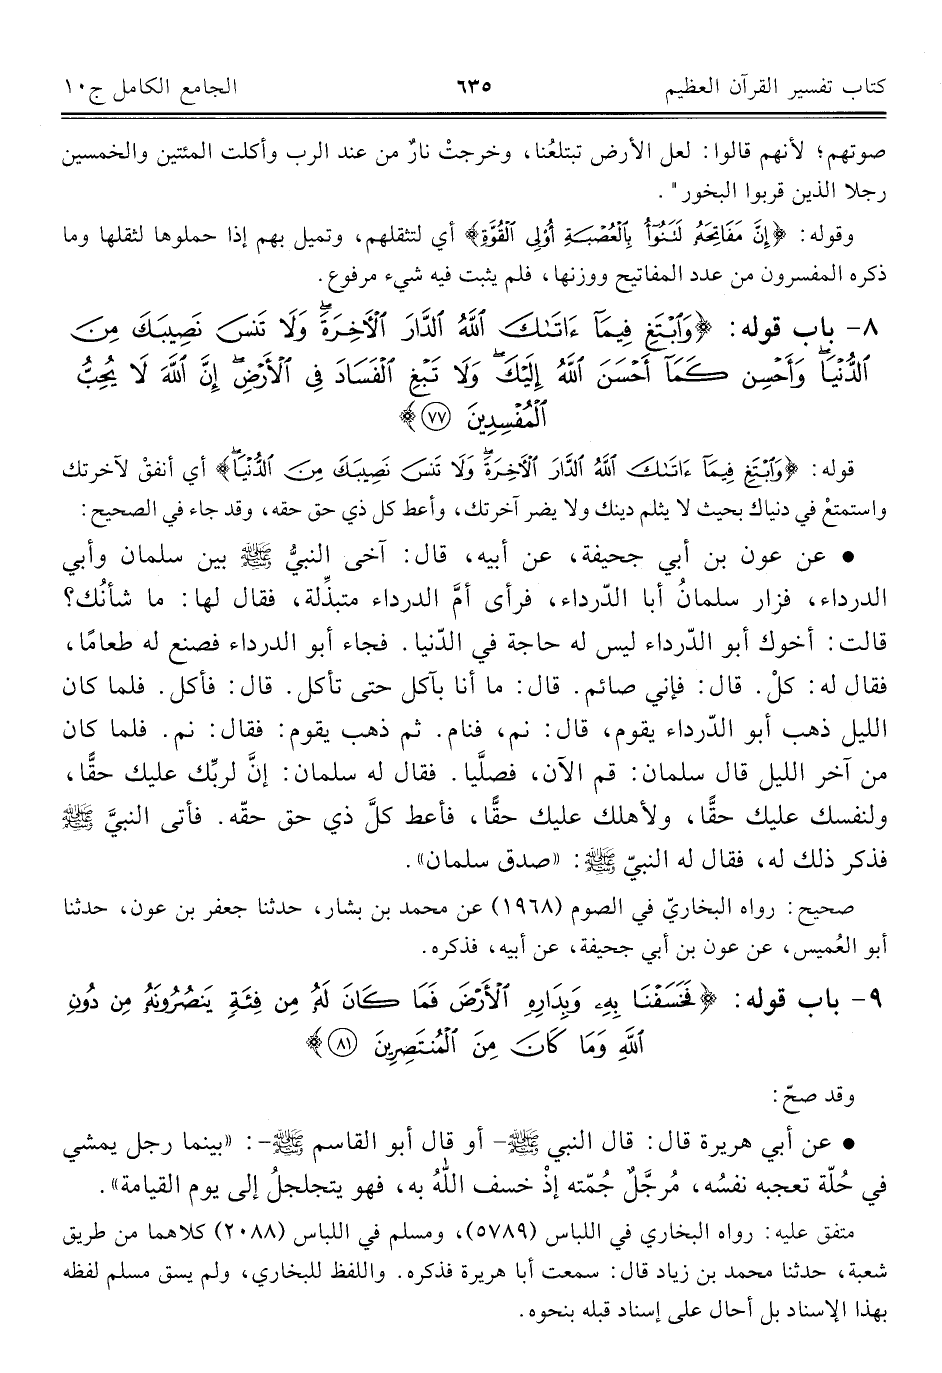 كتاب تفسير القرآن العظيم ٦٣٥ الجامع الكامل ج١٠
صوتهم؛ لأنهم قالوا: لعل الأرض تبتلعُنا، وخرجتْ نارٌ من عند الرب وأكلت المئتين والخمسين
رجلا الذين قربوا البخور".
وقوله: ﴿إِنَّ مَفَاتِحَهُۥ لَتَنُوٓأُ بِٱلْعُصْبَةِ أُو۟لِى ٱلْقُوَّةِ﴾ أي لتثقلهم، وتميل بهم إذا حملوها لثقلها وما
ذكره المفسرون من عدد المفاتيح ووزنها، فلم يثبت فيه شيء مرفوع.
٨- باب قوله: ﴿وَٱبْتَغِ فِيمَآ ءَاتَىٰكَ ٱللَّهُ ٱلدَّارَ ٱلْـَٔاخِرَةَ ۖ وَلَا تَنسَ نَصِيبَكَ مِنَ
ٱلدُّنْيَا ۖ وَأَحْسِن كَمَآ أَحْسَنَ ٱللَّهُ إِلَيْكَ ۖ وَلَا تَبْغِ ٱلْفَسَادَ فِى ٱلْأَرْضِ ۖ إِنَّ ٱللَّهَ لَا يُحِبُّ
ٱلْمُفْسِدِينَ ٧٧﴾
قوله: ﴿وَٱبْتَغِ فِيمَآ ءَاتَىٰكَ ٱللَّهُ ٱلدَّارَ ٱلْـَٔاخِرَةَ ۖ وَلَا تَنسَ نَصِيبَكَ مِنَ ٱلدُّنْيَا ۖ﴾ أي أنفقْ لآخرتك
واستمتعْ في دنياك بحيث لا يثلم دينك ولا يضر آخرتك، وأعط كل ذي حق حقه، وقد جاء في الصحيح:
• عن عون بن أبي جحيفة، عن أبيه، قال: آخى النبيُّ ﷺ بين سلمان وأبي
الدرداء، فزار سلمانُ أبا الدّرداء، فرأى أمَّ الدرداء متبذِّلة، فقال لها: ما شأنُك؟
قالت: أخوك أبو الدّرداء ليس له حاجة في الدّنيا. فجاء أبو الدرداء فصنع له طعامًا،
فقال له: كلْ. قال: فإني صائم. قال: ما أنا بآكل حتى تأكل. قال: فأكل. فلما كان
الليل ذهب أبو الدّرداء يقوم، قال: نم، فنام. ثم ذهب يقوم: فقال: نم. فلما كان
من آخر الليل قال سلمان: قم الآن، فصلَّيا. فقال له سلمان: إنَّ لربِّك عليك حقًّا،
ولنفسك عليك حقًّا، ولأهلك عليك حقًّا، فأعط كلَّ ذي حق حقّه. فأتى النبيَّ ﷺ
فذكر ذلك له، فقال له النبيّ ﷺ: «صدق سلمان».
صحيح: رواه البخاريّ في الصوم (١٩٦٨) عن محمد بن بشار، حدثنا جعفر بن عون، حدثنا
أبو العُميس، عن عون بن أبي جحيفة، عن أبيه، فذكره.
٩- باب قوله: ﴿فَخَسَفْنَا بِهِۦ وَبِدَارِهِ ٱلْأَرْضَ فَمَا كَانَ لَهُۥ مِن فِئَةٍ يَنصُرُونَهُۥ مِن دُونِ
ٱللَّهِ وَمَا كَانَ مِنَ ٱلْمُنتَصِرِينَ ٨١﴾
وقد صحّ:
• عن أبي هريرة قال: قال النبي ﷺ- أو قال أبو القاسم ﷺ-: «بينما رجل يمشي
في حُلّة تعجبه نفسُه، مُرجَّلٌ جُمّته إذْ خسف اللهُ به، فهو يتجلجلُ إلى يوم القيامة».
متفق عليه: رواه البخاري في اللباس (٥٧٨٩)، ومسلم في اللباس (٢٠٨٨) كلاهما من طريق
شعبة، حدثنا محمد بن زياد قال: سمعت أبا هريرة فذكره. واللفظ للبخاري، ولم يسق مسلم لفظه
بهذا الإسناد بل أحال على إسناد قبله بنحوه.